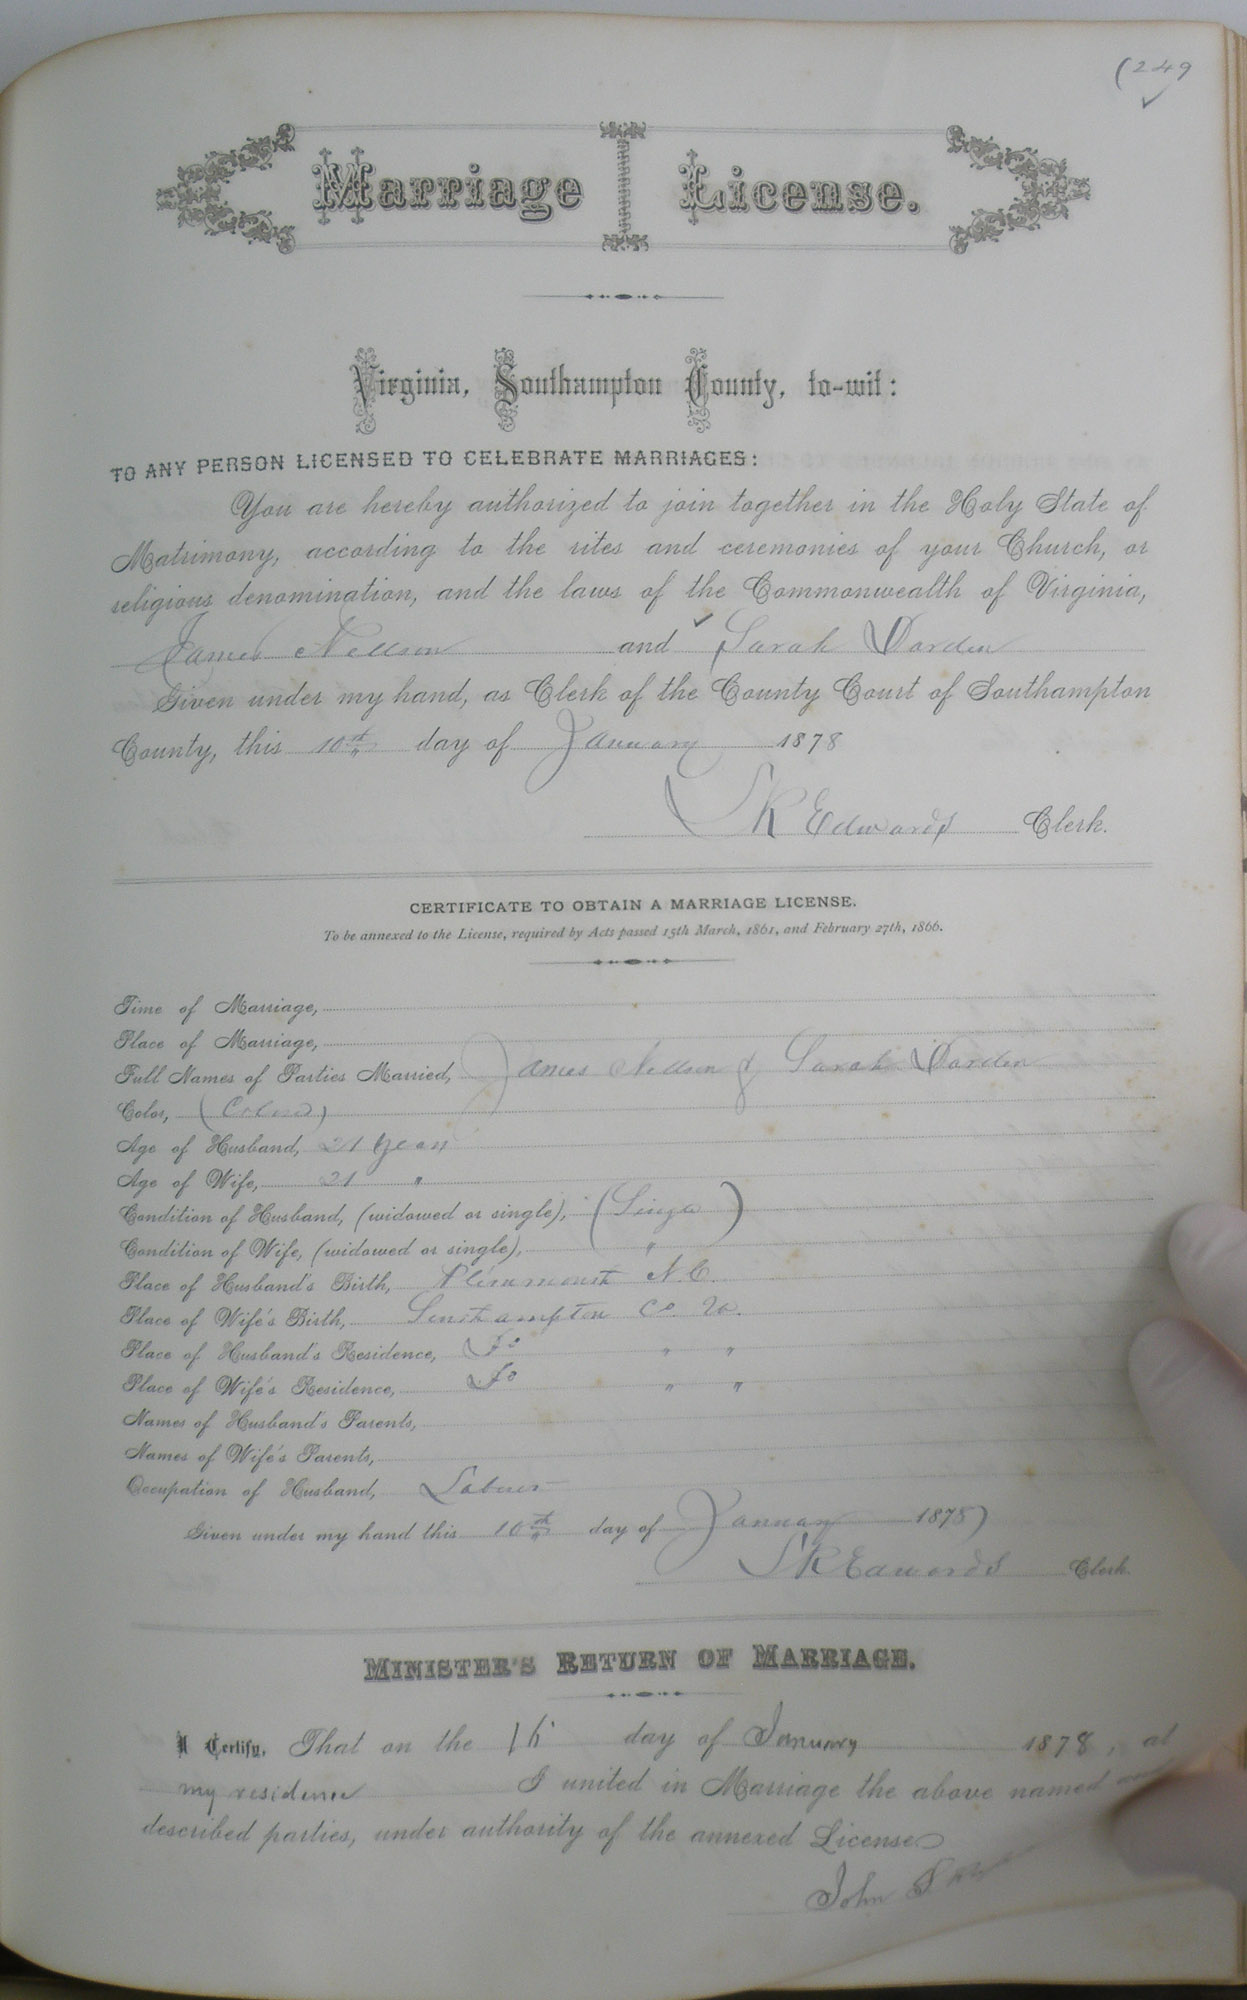 (249
Marriage License.
Virginia, Southampton County, to-wit:
TO ANY PERSON LICENSED TO CELEBRATE MARRIAGES:
You are hereby authorized to join together in the Holy State of
Matrimony, according to the rites and ceremonies of your Church, or
religious denomination, and the laws of the Commonwealth of Virginia,
James Nellson and Sarah Darden
Given under my hand, as Clerk of the County Court of Southampton
County, this 10th day of January 1878
S R Edwards Clerk.
CERTIFICATE TO OBTAIN A MARRIAGE LICENSE.
To be annexed to the License, required by Acts passed 15th March, 1861, and February 27th, 1866.
Time of Marriage,
Place of Marriage,
Full Names of Parties Married, James Nellson & Sarah Darden
Color, (Colored)
Age of Husband, 21 years
Age of Wife, 21 "
Condition of Husband, (widowed or single), (Single)
Condition of Wife, (widowed or single), "
Place of Husband's Birth, N. C.
Place of Wife's Birth, Southampton Co Va.
Place of Husband's Residence, Do " "
Place of Wife's Residence, Do " "
Names of Husband's Parents,
Names of Wife's Parents,
Occupation of Husband, Laborer
Given under my hand this 10th day of January 1878)
S R Edwards Clerk.
MINISTER'S RETURN OF MARRIAGE.
I Certify, That on the day of January 1878, at
my residence I united in Marriage the above named and
described parties, under authority of the annexed License
John